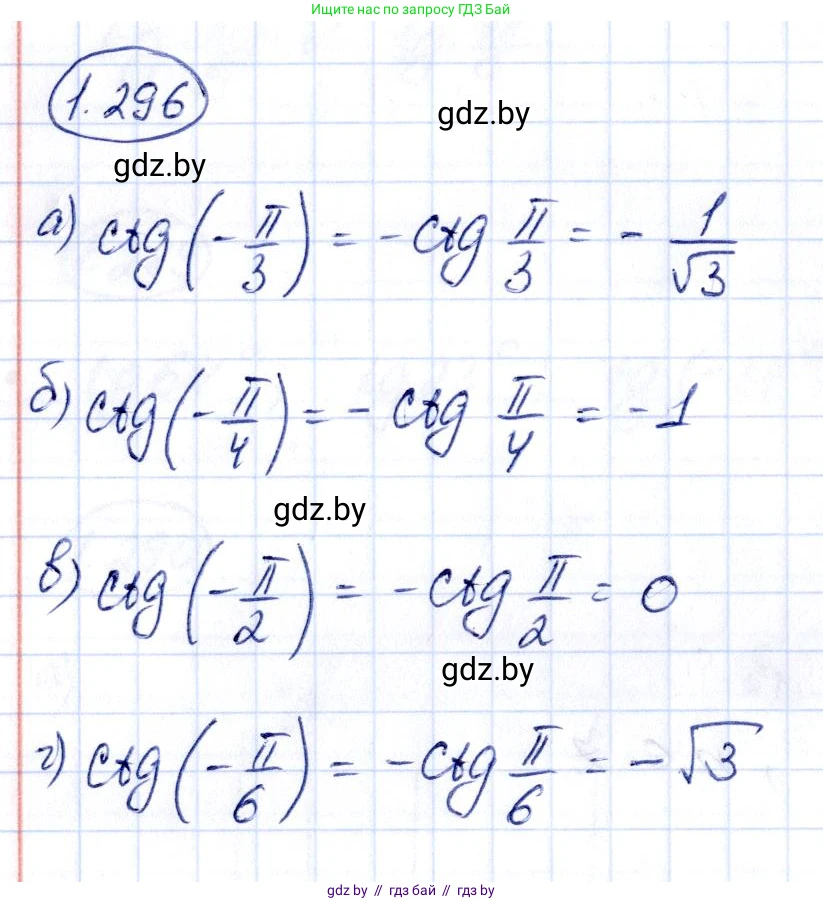 Ищите нас по запросу ГДЗ Бай
1.296
gdz.by
gdz.by
а) ctg(-π/3) = -ctg π/3 = - 1/√3
б) ctg(-π/4) = - ctg π/4 = -1
gdz.by
в) ctg(-π/2) = -ctg π/2 = 0
gdz.by
г) ctg(-π/6) = -ctg π/6 = -√3
gdz by // гдз бай // гдз by